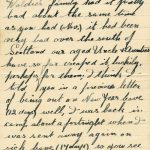 family had it pretty
bad about the same time
as you had (Abe) it had been
very bad over the south of
Scotland our aged Uncle
have so far escaped it luckily
perhaps for them, I think I
told you in a previous letter
of being out on New Year leave
(12 days) well, I was back in
camp about a fortnight when I
was sent away again on
sick leave (17 days) so you see